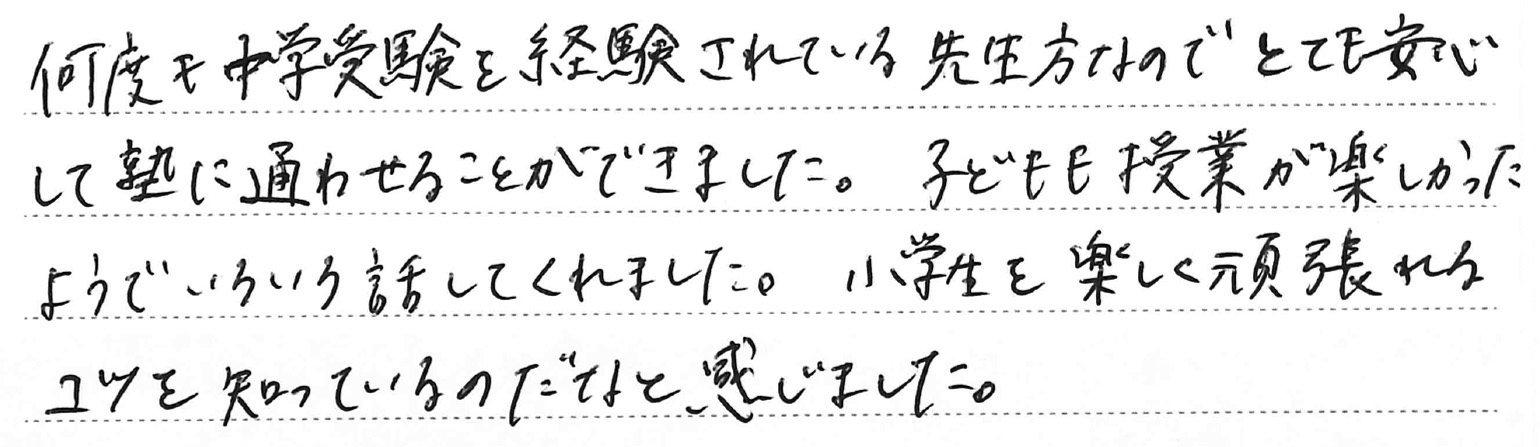 何度も中学受験を経験されている先生方なのでとても安心
して塾に通わせることができました。 子どもも授業が楽しかった
ようでいろいろ話してくれました。 小学生を楽しく頑張れる
コツを知っているのだなと感じました。